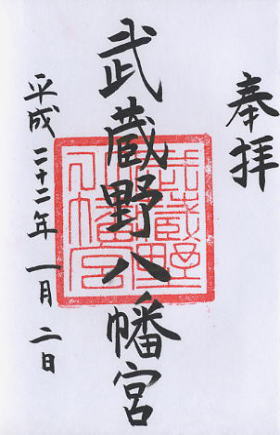 奉拝
武蔵野八幡宮
武蔵野
八幡宮
平成二十二年一月二日